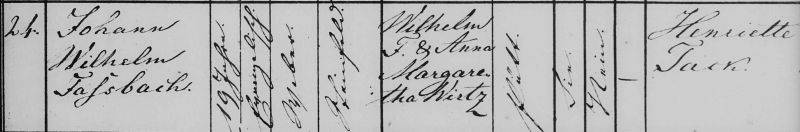 24.
Johann
Wilhelm
Fassbach.
19 Jahr.
Weber
Wilhelm
F. & Anna
Margare-
tha Wirtz
Nein.
Henriette
Tack.